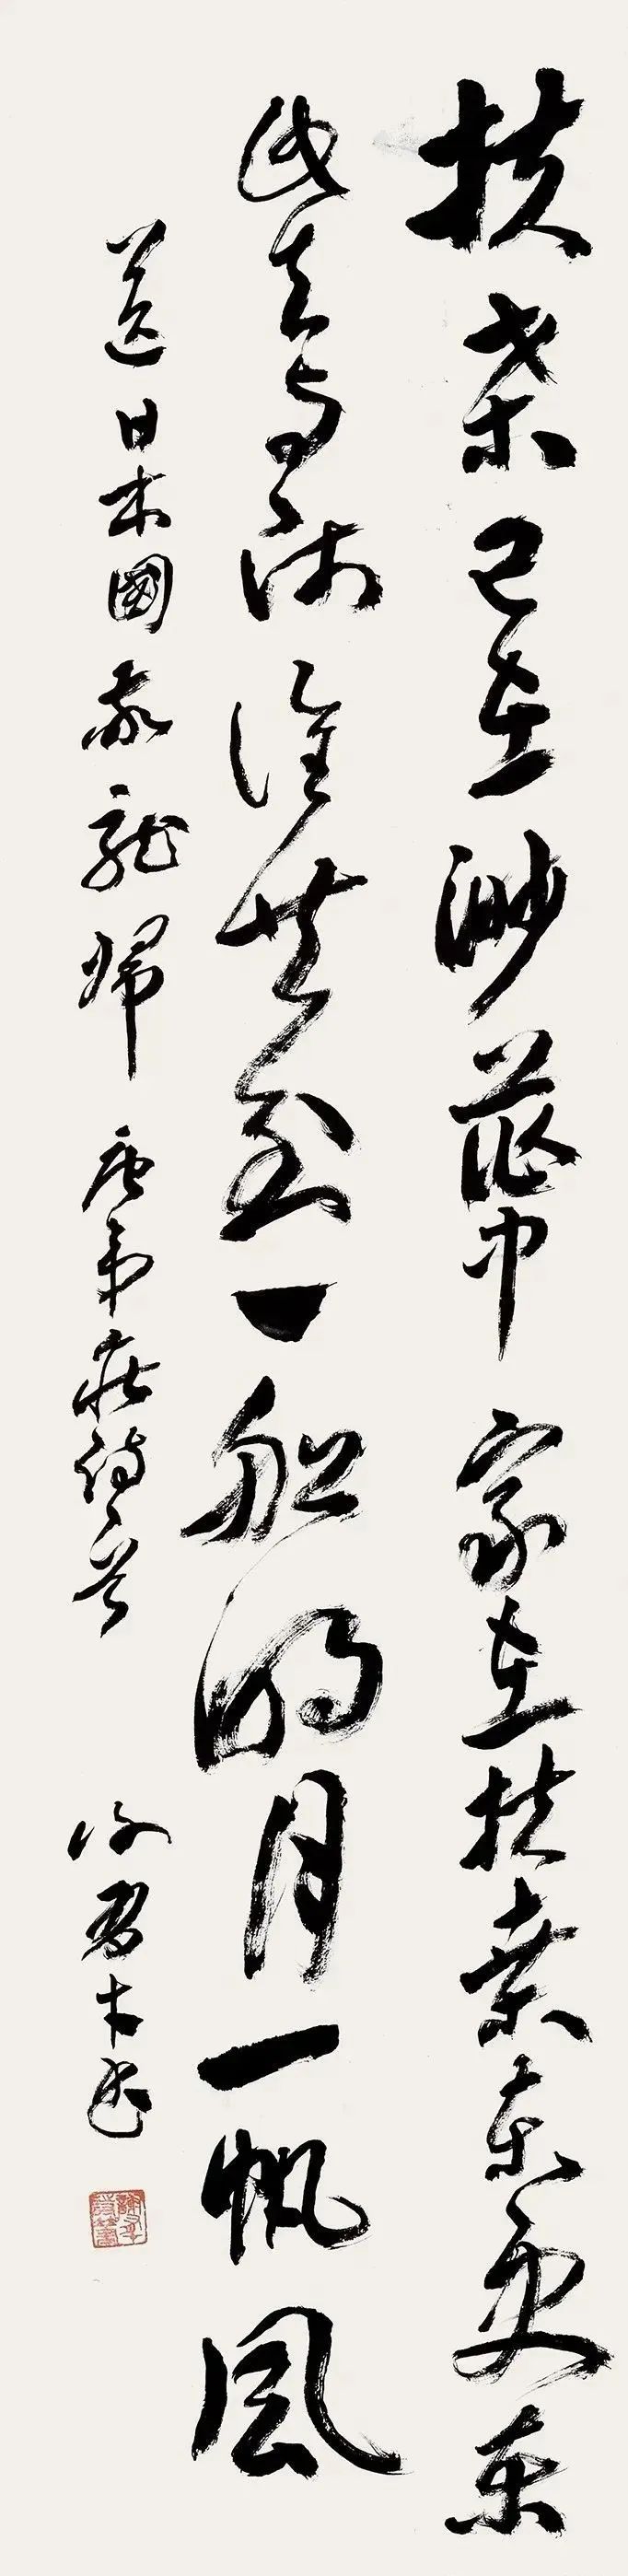 扶桑已在渺茫中家在扶桑东更东
此去与师谁共到一船明月一帆风
送日本国敬龙归 唐韦庄诗意